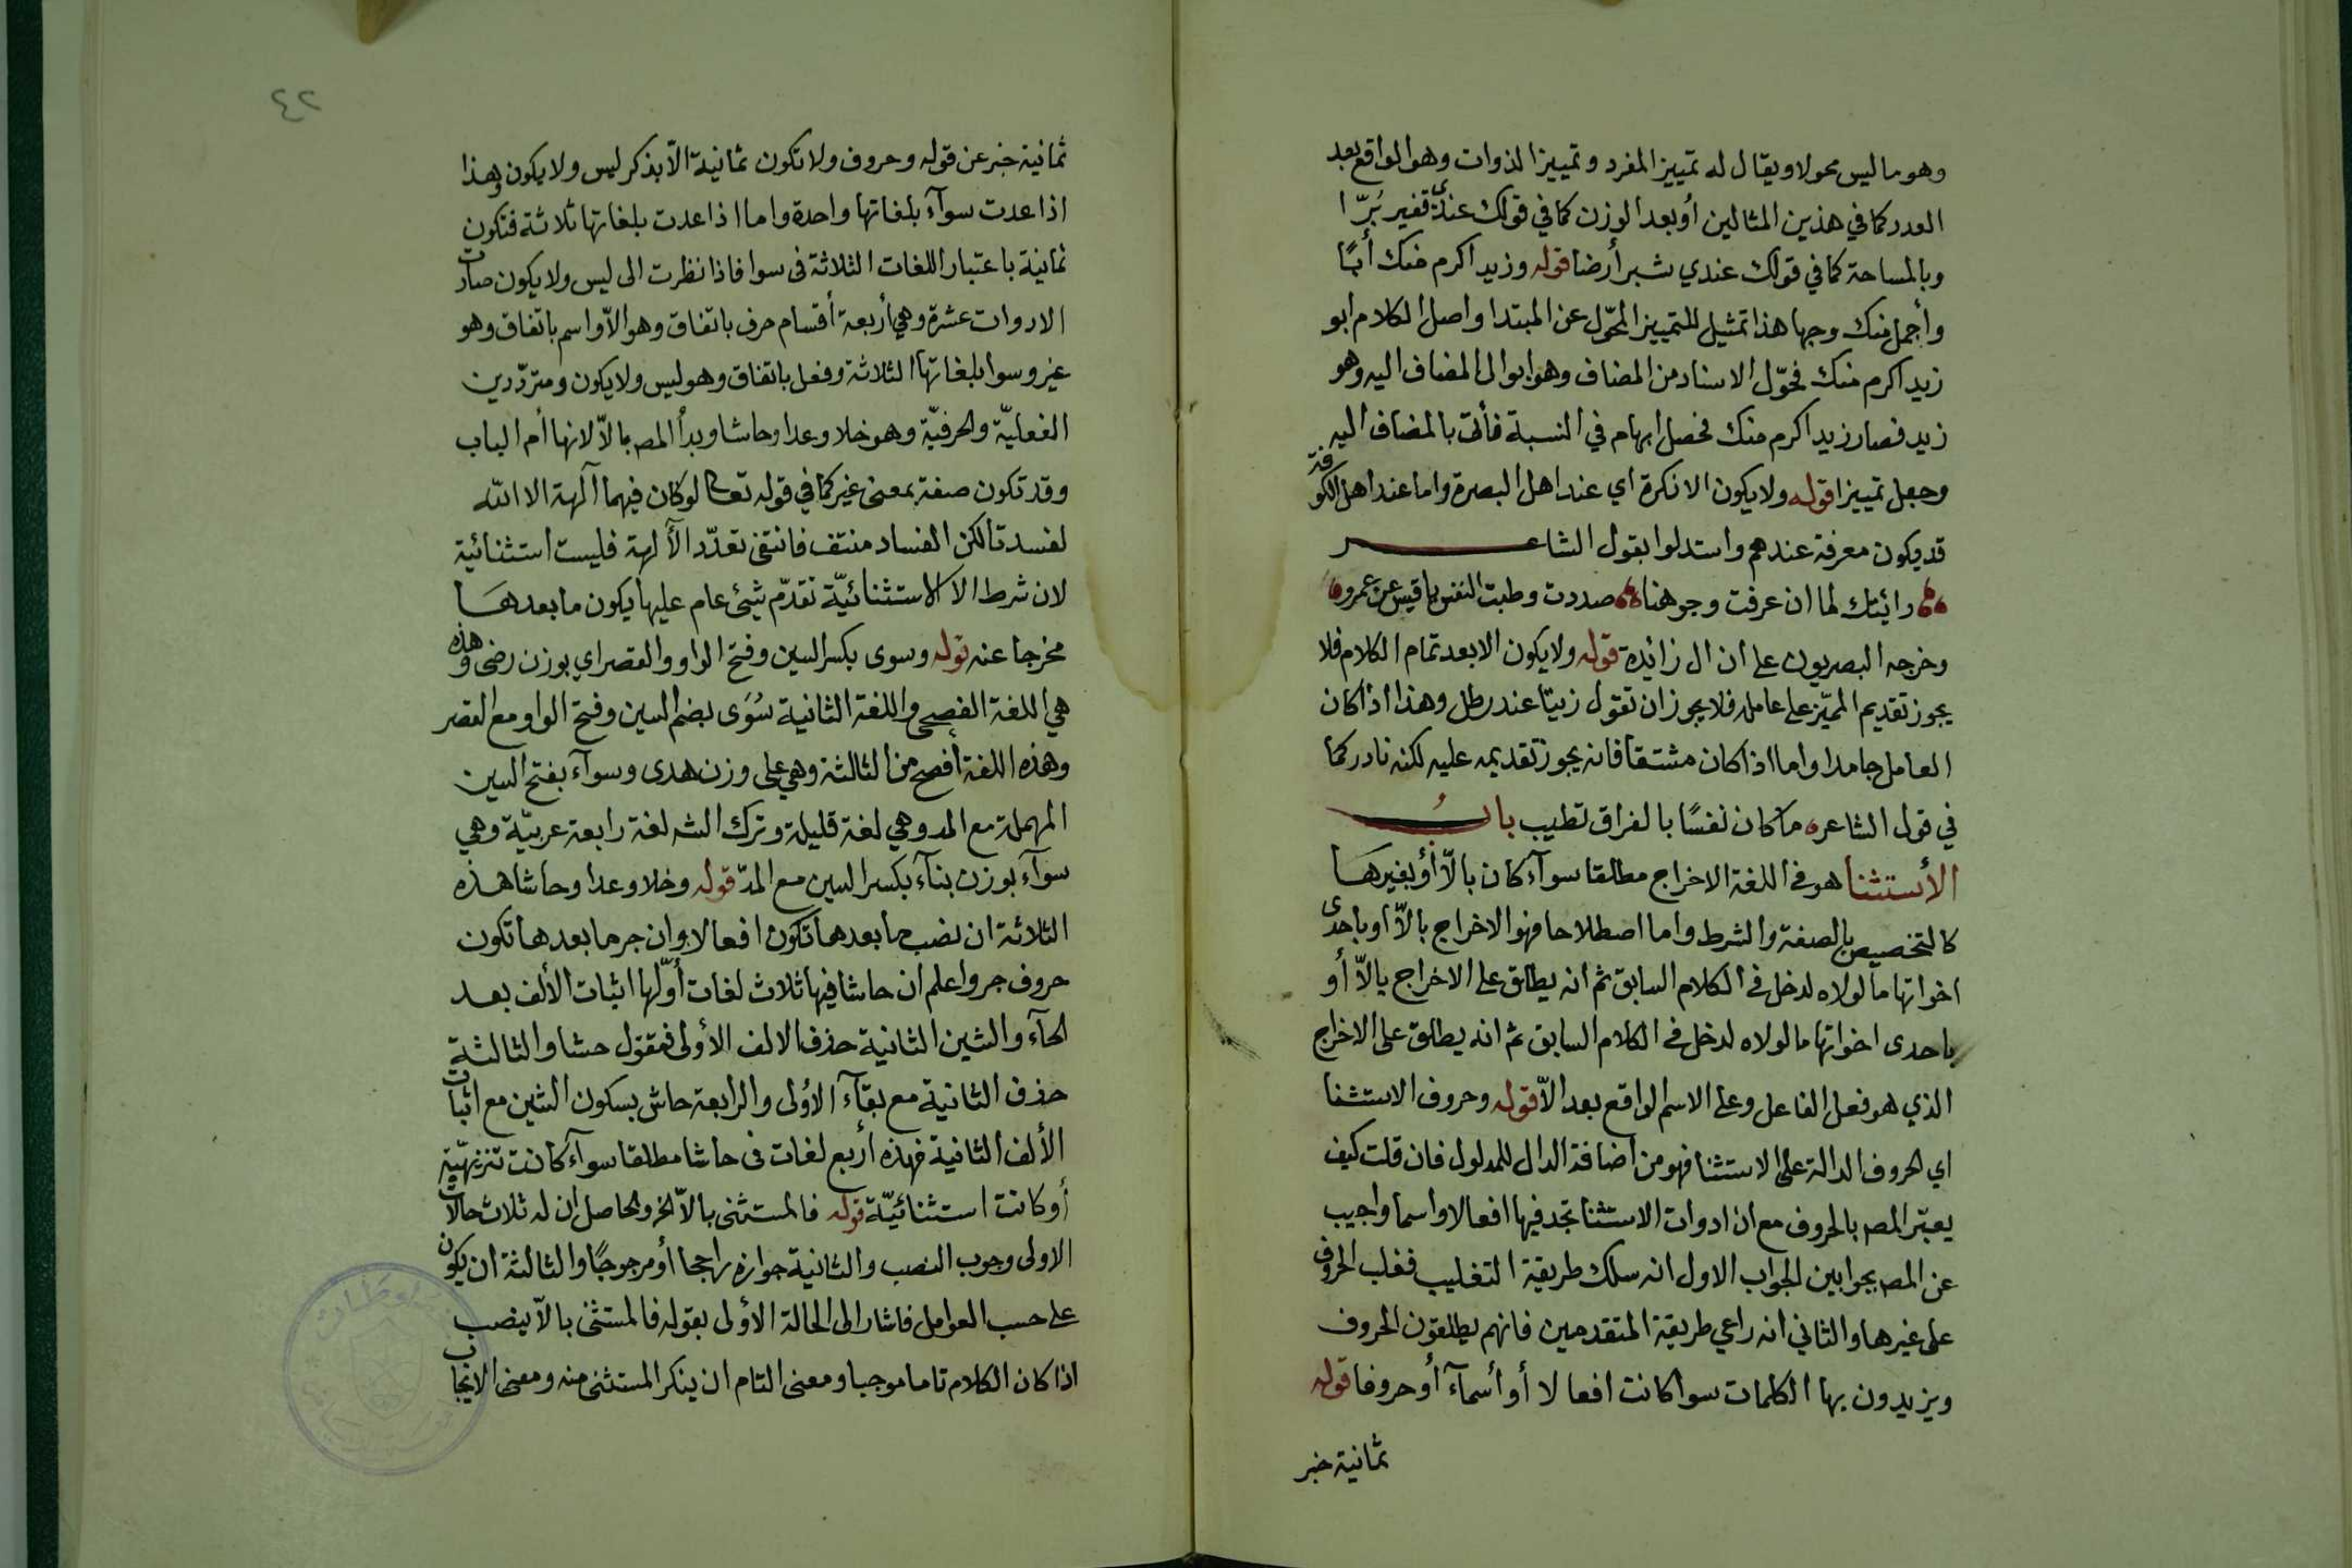 وهو ما ليس محولا ويقال له تمييز المفرد وتمييز الذوات وهو الواقع بعد
العدد كما في هذين المثالين أو بعد الوزن كما في قولك عندي قفيز بُرّا
وبالمساحة كما في قولك عندي شبر أرضا قوله وزيد اكرم منك أبًا
وأجمل منك وجها هذا تمثيل للتمييز المحوّل عن المبتدا واصل الكلام ابو
زيد اكرم منك فحوّل الاسناد من المضاف وهو ابو الى المضاف اليه وهو
زيد فصار زيد اكرم منك فحصل ابهام في النسبة فأتى بالمضاف اليه
وجعل تمييزا قوله ولا يكون الا نكرة اي عند اهل البصرة واما عند اهل الكوفة
قد يكون معرفة عندهم واستدلوا بقول الشاعر
رائيتك لما ان عرفت وجوهنا صددت وطبت النفس يا قيس عن عمرو
وخرجه البصريون على ان ال زائدة قوله ولا يكون الا بعد تمام الكلام فلا
يجوز تقديم المميّز على عامله فلا يجوز ان تقول زيتا عند رطل وهذا اذا كان
العامل جامدا واما اذا كان مشتقا فانه يجوز تقديمه عليه لكنه نادر كما
في قول الشاعر ما كان نفسًا بالفراق تطيب بابُ
الأستثنا هو في اللغة الاخراج مطلقا سوآء كان بالاّ أو بغيرها
كالتخصيص بالصفة والشرط واما اصطلاحا فهو الاخراج بالاّ او باحدى
اخواتها ما لولاه لدخل في الكلام السابق ثم انه يطلق على الاخراج بالاّ أو
باحدى اخواتها ما لولاه لدخل في الكلام السابق ثم انه يطلق على الاخراج
الذي هو فعل الفاعل وعلى الاسم الواقع بعد الاّ قوله وحروف الاستثنا
اي الحروف الدالة على الاستثنا فهو من اضافة الدال للمدلول فان قلت كيف
يعبّر المصـ بالحروف مع ان ادوات الاستثنا تجد فيها افعالا واسما واجيب
عن المصـ بجوابين الجواب الاول انه سلك طريقة التغليب فغلب الحروف
على غيرها والثاني انه راعي طريقة المتقدمين فانهم يطلقون الحروف
ويزيدون بها الكلمات سوا كانت افعالا أو أسمآء أو حروفا قوله
ثمانية خبر
٤٢
ثمانية خبر عن قوله وحروف ولا تكون ثمانية الاّ بذكر ليس ولا يكون وهذا
اذا عدت سوآء بلغاتها واحدة واما اذا عدت بلغاتها ثلاثة فتكون
ثمانية باعتبار اللغات الثلاثة في سوا فاذا نظرت الى ليس ولا يكون صارت
الادوات عشرة وهي أربعة أقسام حرف باتفاق وهو الاّ واسم باتفاق وهو
غير وسوا بلغاتها الثلاثة وفعل باتفاق وهو ليس ولا يكون ومتردّدين
الفعليّة والحرفيّة وهو خلا وعدا وحاشا وبدأ المصـ بالاّ لانها أم الباب
وقد تكون صفة بمعنى غير كما في قوله تعالى لو كان فيهما آلهة الا الله
لفسدتا لكن الفساد منتف فانتفى تعدّد الآلهة فليست استثنائية
لان شرط الا الاستثنائيّة تقدّم شيئ عام عليها يكون ما بعدها
مخرجا عنه قوله وسوى بكسر السين وفتح الواو والقصر اي بوزن رضى وهذه
هي اللغة الفصحى واللغة الثانية سُوَى بضم السين وفتح الواو مع القصر
وهذه اللغة أفصح من الثالثة وهي على وزن هدى وسوآء بفتح السين
المهملة مع المد وهي لغة قليلة وترك الشـ لغة رابعة عربيّة وهي
سوآء بوزن بنآء بكسر السين مع المدّ قوله وخلا وعدا وحاشا هذه
الثلاثة ان نصب ما بعدها تكون افعالا وان جر ما بعدها تكون
حروف جر واعلم ان حاشا فيها ثلاث لغات أوّلها اثبات الألف بعد
الحآء والشين الثانية حذف الالف الأولى فمقول حشا والثالثة
حذف الثانية مع بقآء الأولى والرابعة حاش بسكون الشين مع اثبات
الألف الثانية فهذه أربع لغات في حاشا مطلقا سوآء كانت تنزيهيّة
أو كانت استثنائيّة قوله فالمستثنى بالاّ الخ والحاصل ان له ثلاث حالات
الاولى وجوب النصب والثانية جوازه راجحا أو مرجوحًا والثالثة ان يكون
على حسب العوامل فاشار الى الحالة الأولى بقوله فالمستثنى بالاّ ينصب
اذا كان الكلام تاما موجبا ومعنى التام ان يذكر المستثنى منه ومعنى الايجاب